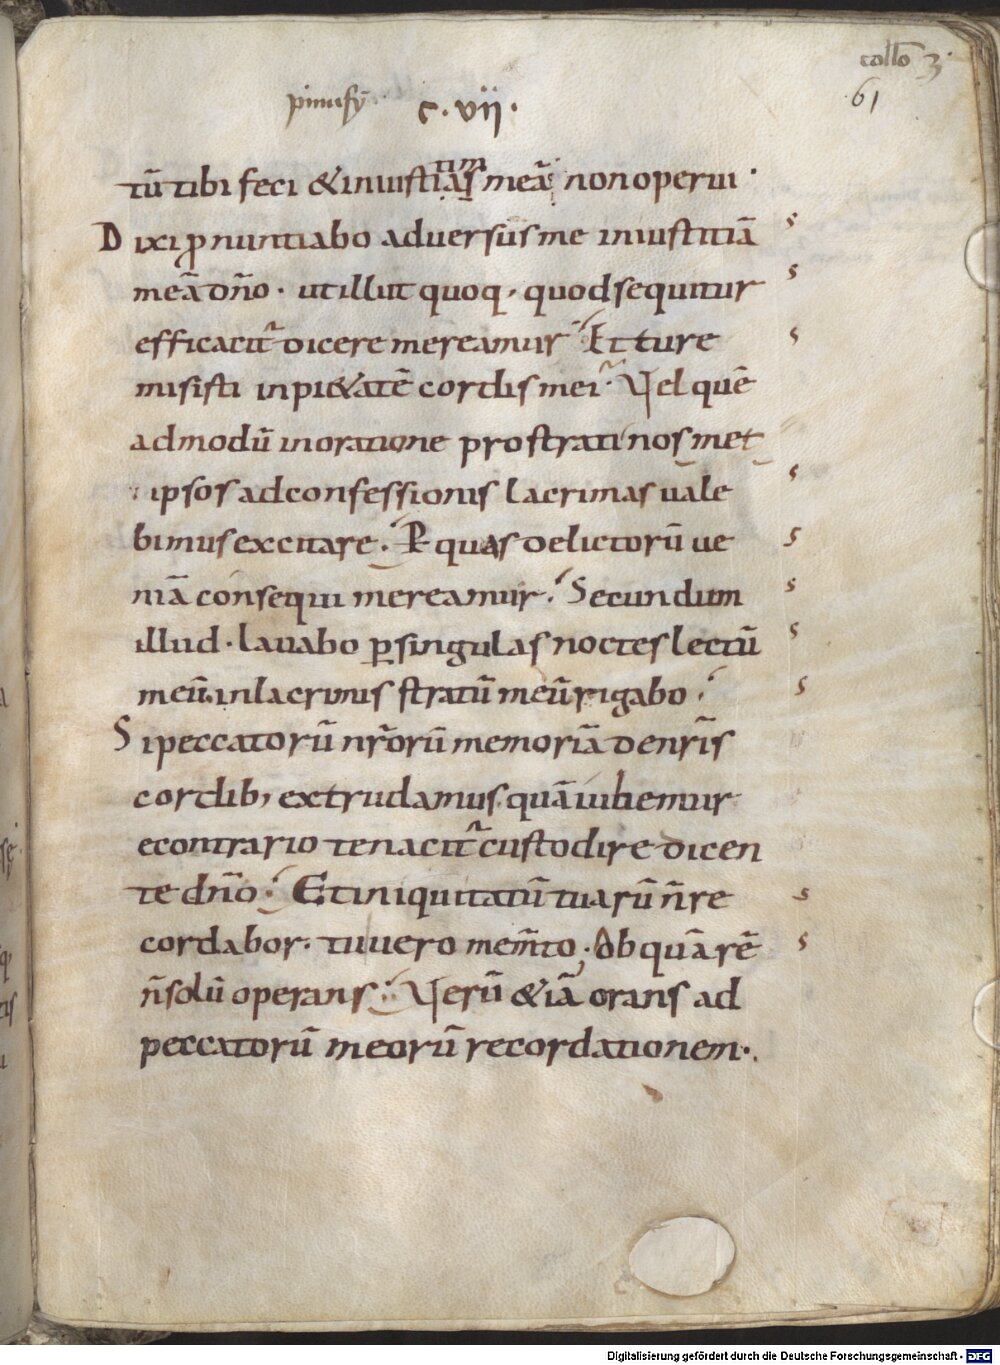 collo 3
61
pinufẏ c · vii ·
tū tibi feci & iniustiaſ meā non operui ·
tim
Dixi ꝓnuntiabo adversus me iniustitiā s
meā dn̄o · ut illut quoq, quod sequitur s
efficacit̄ dicere mereamur Et tu re s
misisti inpi&atē cordis mei · Vel quē
admodū in oratione prostrati nosmet
ipsos ad confessionis lacrimas vale s
bimus excitare · P quas delictorū ve s
niā consequi mereamur · Secundum s
illud · lavabo ꝑ singulas noctes lectū s
meū · in lacrimis stratū meū rigabo s
Si peccatorū nr̄orū memoriā de nr̄is
cordib, extrudamus quā iubemur
econtrario tenacit̄ custodire dicen
te dn̄o · Et iniquitatū tuarū n̄ re s
cordabor · tu vero mem̄to · Ob quā rē s
n̄ solū operans · Verū & iā orans ad
peccatorū meorū recordationem ·
Digitalisierung gefördert durch die Deutsche Forschungsgemeinschaft - DFG